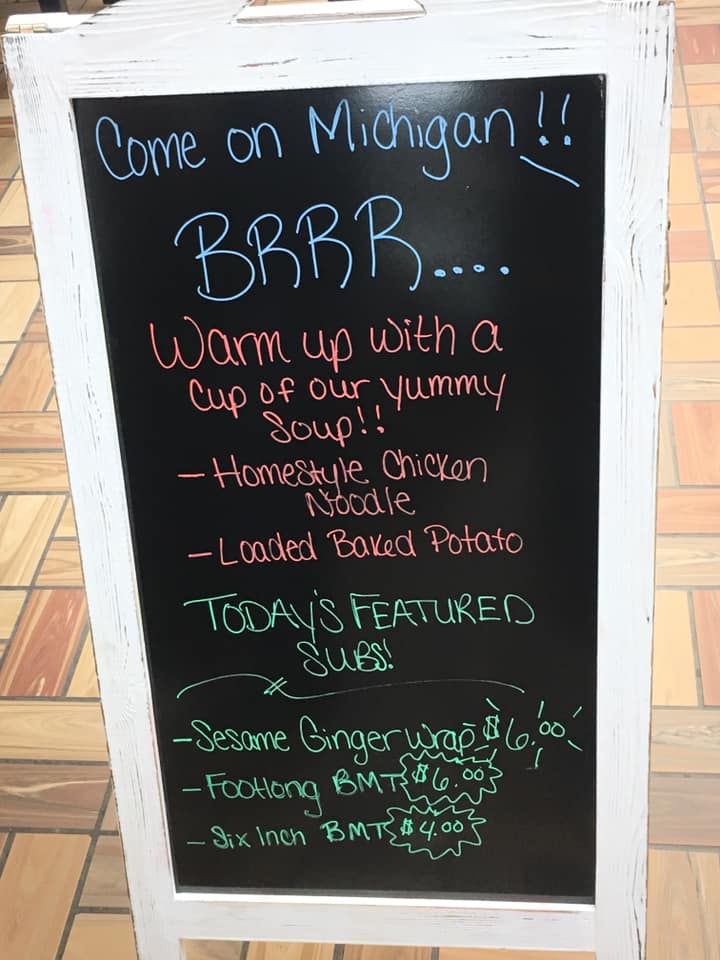 Come on Michigan!!
BRRR....
Warm up with a
cup of our yummy
Soup!!
- Homestyle Chicken
Noodle
- Loaded Baked Potato
TODAY'S FEATURED
SUBS!
- Sesame Ginger Wrap $6.00
- Footlong BMT $6.00
- Six Inch BMT $4.00